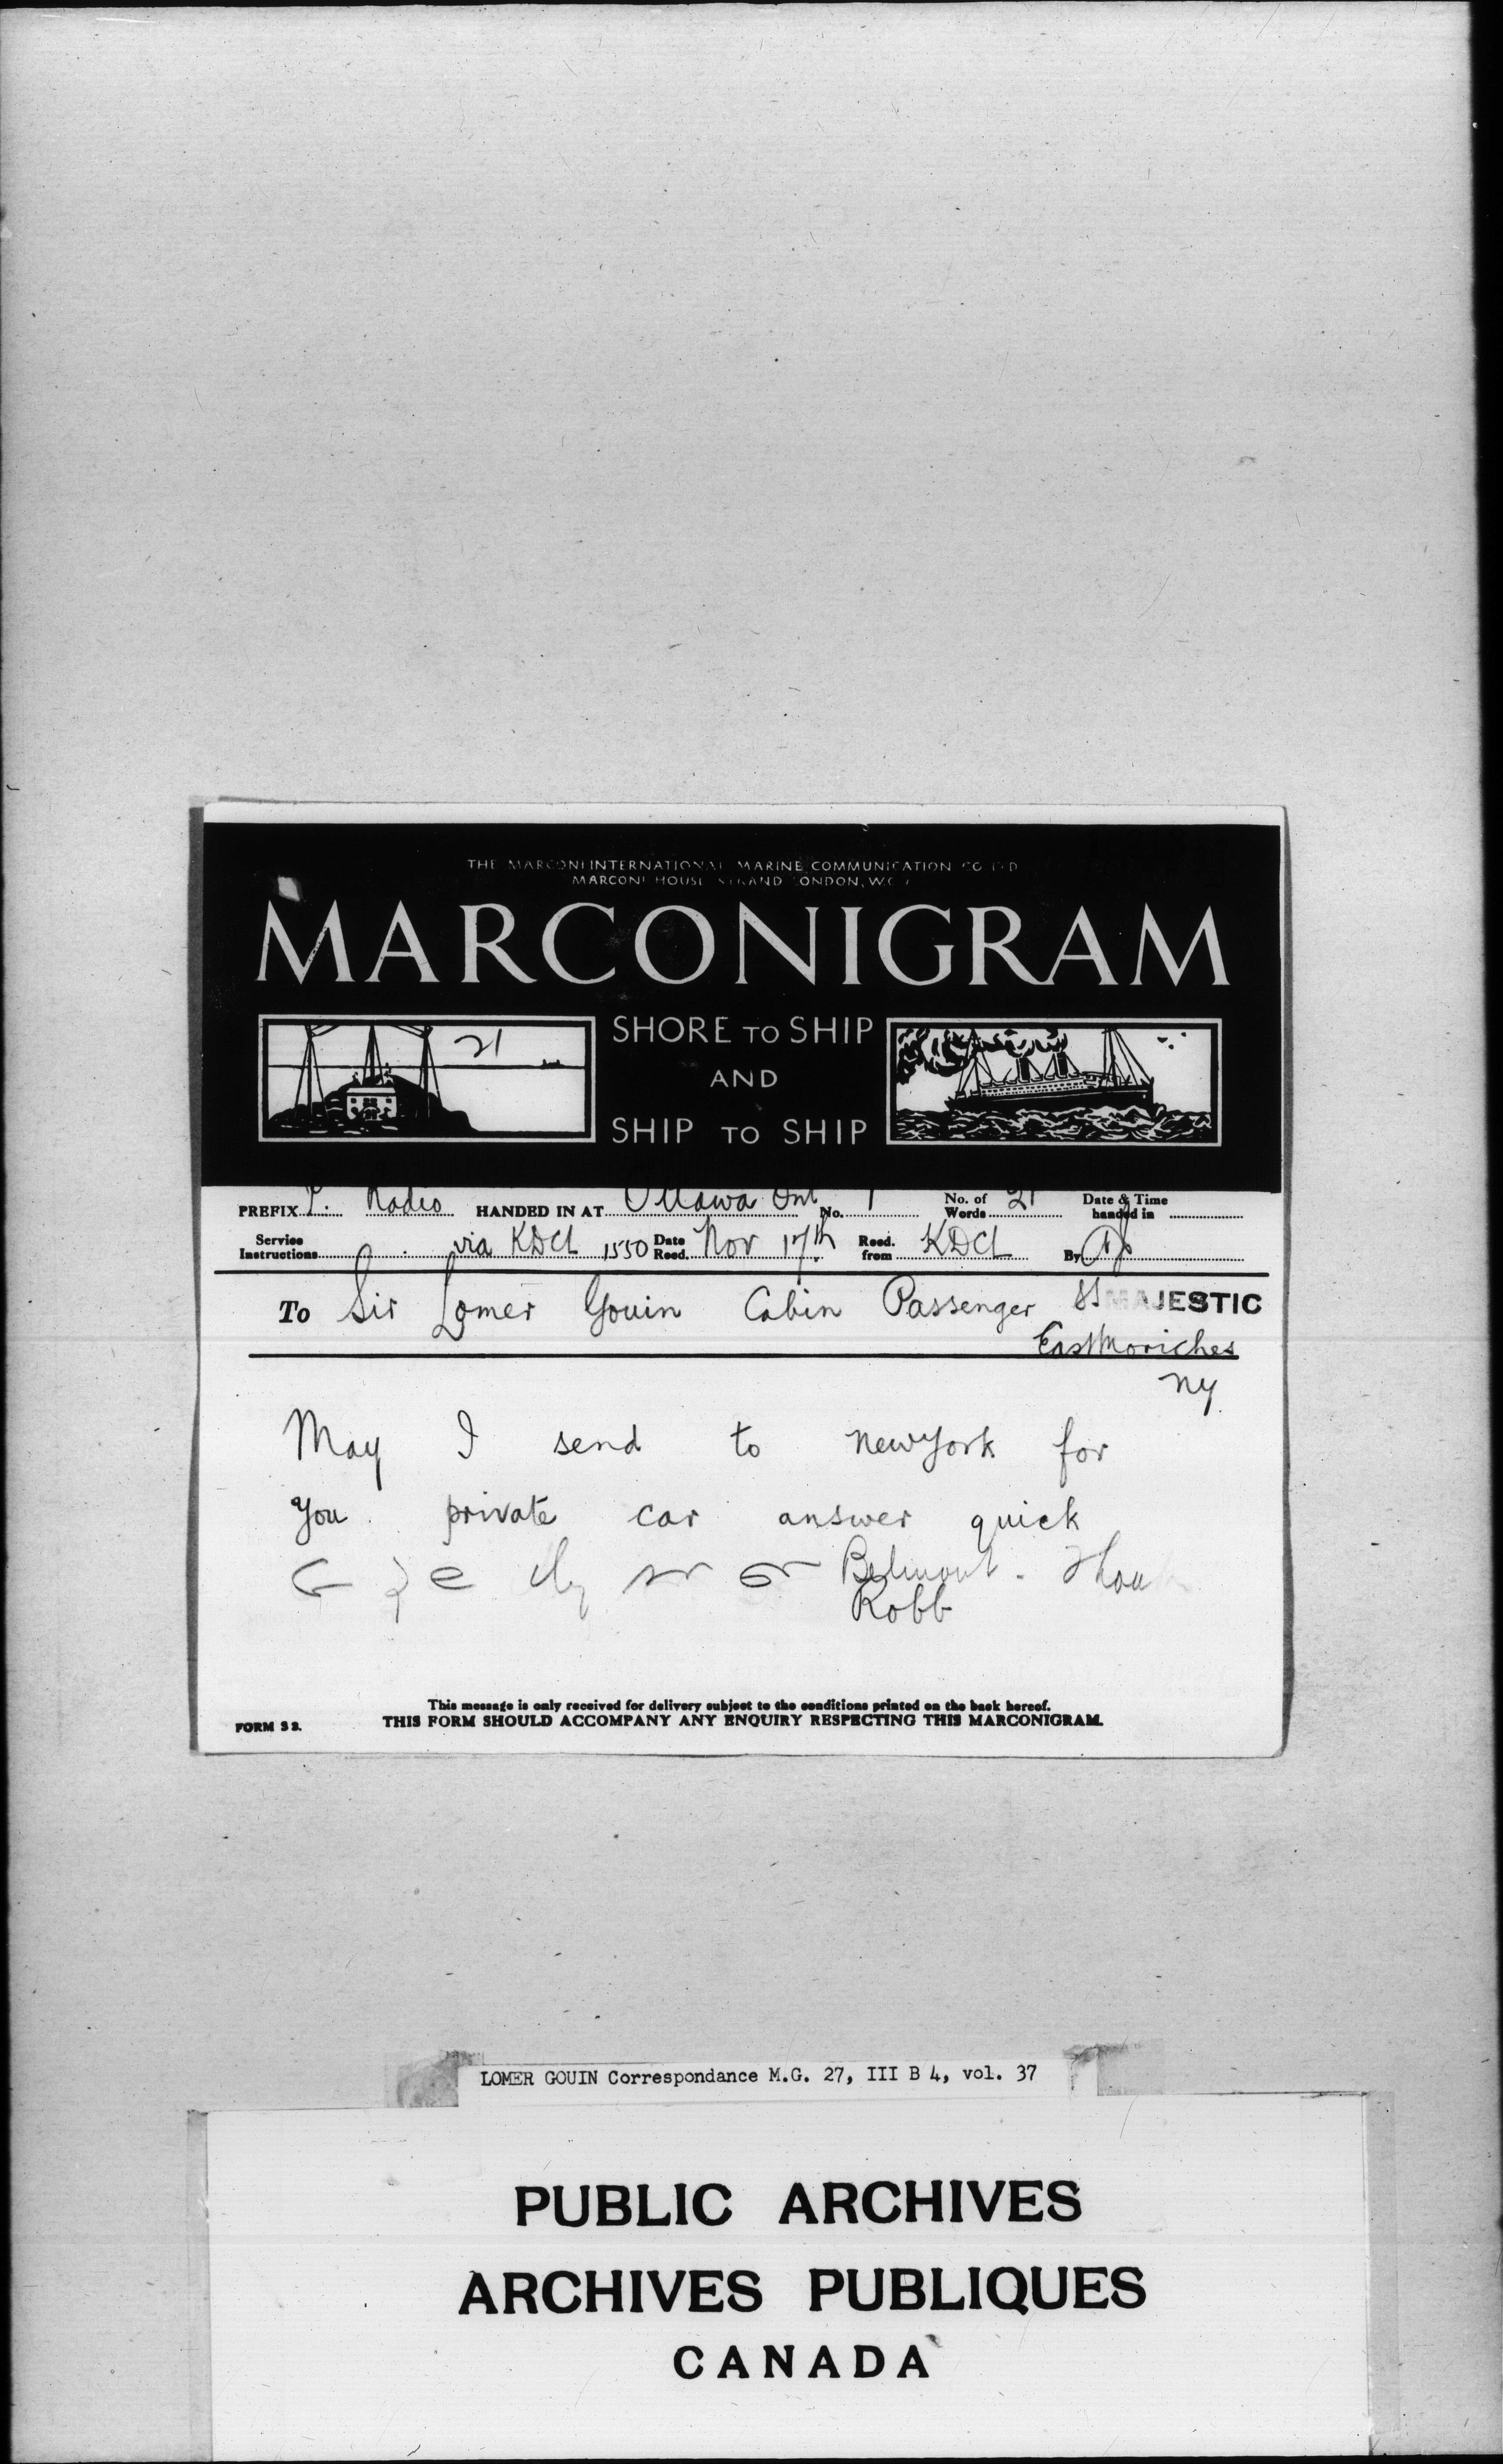 THE MARCONI INTERNATIONAL MARINE COMMUNICATION CO LTD
MARCONI HOUSE STRAND LONDON, W.C.
MARCONIGRAM
21
SHORE TO SHIP
AND
SHIP TO SHIP
PREFIX P. Radio HANDED IN AT Ottawa Ont No. 1 No. of Words 21 Date & Time handed in
Service Instructions via KDCL 1550 Date Recd. Nov 17th Recd. from KDCL By
To Sir Lomer Gouin Cabin Passenger SS MAJESTIC
East Moriches
NY
May I send to newyork for
you private car answer quick
Belmont.
Robb
This message is only received for delivery subject to the conditions printed on the back hereof.
FORM S 2. THIS FORM SHOULD ACCOMPANY ANY ENQUIRY RESPECTING THIS MARCONIGRAM.
LOMER GOUIN Correspondance M.G. 27, III B 4, vol. 37
PUBLIC ARCHIVES
ARCHIVES PUBLIQUES
CANADA